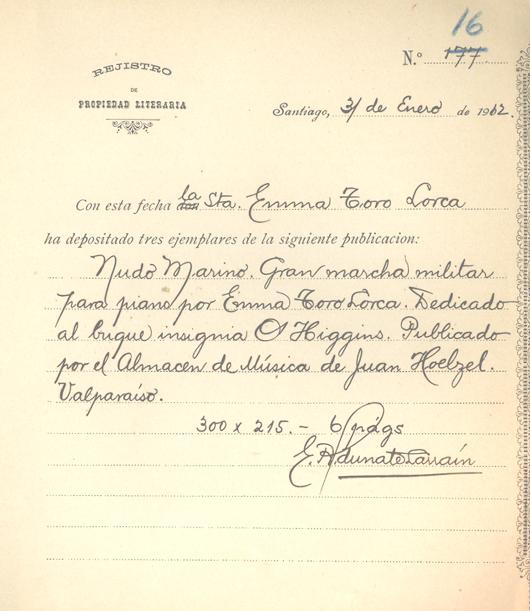 16
N.º 177
REJISTRO
DE
PROPIEDAD LITERARIA
Santiago, 31 de Enero de 1912.
Con esta fecha la Sta. Emma Toro Lorca
ha depositado tres ejemplares de la siguiente publicacion:
Nudo Marino. Gran marcha militar
para piano por Emma Toro Lorca. Dedicado
al buque insignia O'Higgins. Publicado
por el Almacén de Música de Juan Hoelzel.
Valparaíso.
300 x 215.- 6 págs
E. Aldunate Larraín